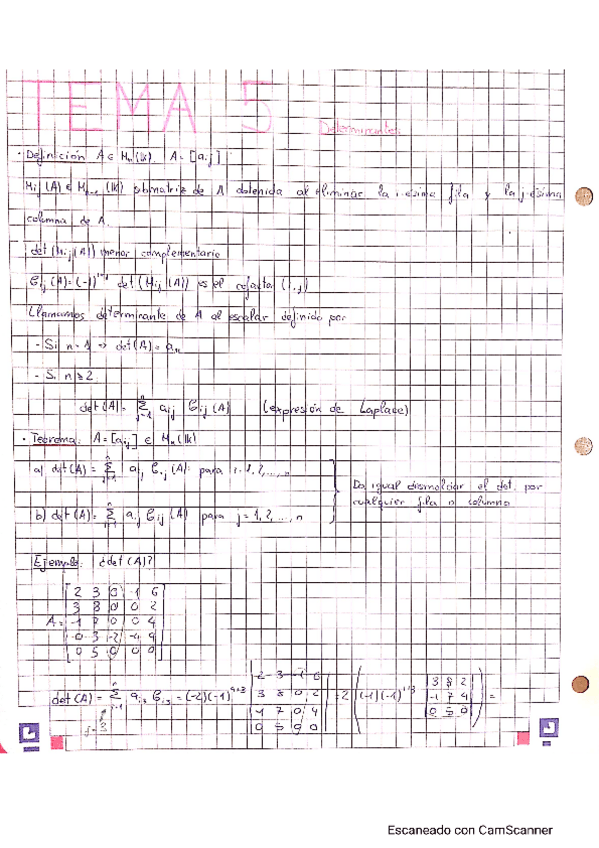 TEMA 5
Determinantes
· Definición A ∈ Mn(lK). A = [aij]
Mij (A) ∈ Mn-1 (lK) submatriz de A obtenida al eliminar la i-ésima fila y la j-ésima
columna de A.
det (Mij (A)) menor complementario
Cij (A) = (-1)^i+j det (Mij (A)) es el cofactor (i,j)
Llamamos determinante de A al escalar definido por
- Si n = 1 => det (A) = a11
- Si n ≥ 2
det (A) = Σ aij Cij (A) (expresión de Laplace)
· Teorema: A = [aij] ∈ Mn (lK)
a) det (A) = Σ aij Cij (A) para i = 1, 2, ..., n
Da igual desarrollar el det. por
cualquier fila o columna
b) det (A) = Σ aij Cij (A) para j = 1, 2, ..., n
Ejemplo: ¿det (A)?
2 3 0 -1 6
3 8 0 0 2
A = -1 7 0 0 4
0 3 -2 -4 9
0 5 0 0 0
det (A) = Σ ai3 Ci3 = (-2)(-1)^4+3 | 2 3 -1 6 | = 2 ( (-1)(-1)^1+3 | 3 8 2 | ) =
3 8 0 2
-1 7 4
-1 7 0 4
0 5 0
0 5 0 0
j=3
Escaneado con CamScanner